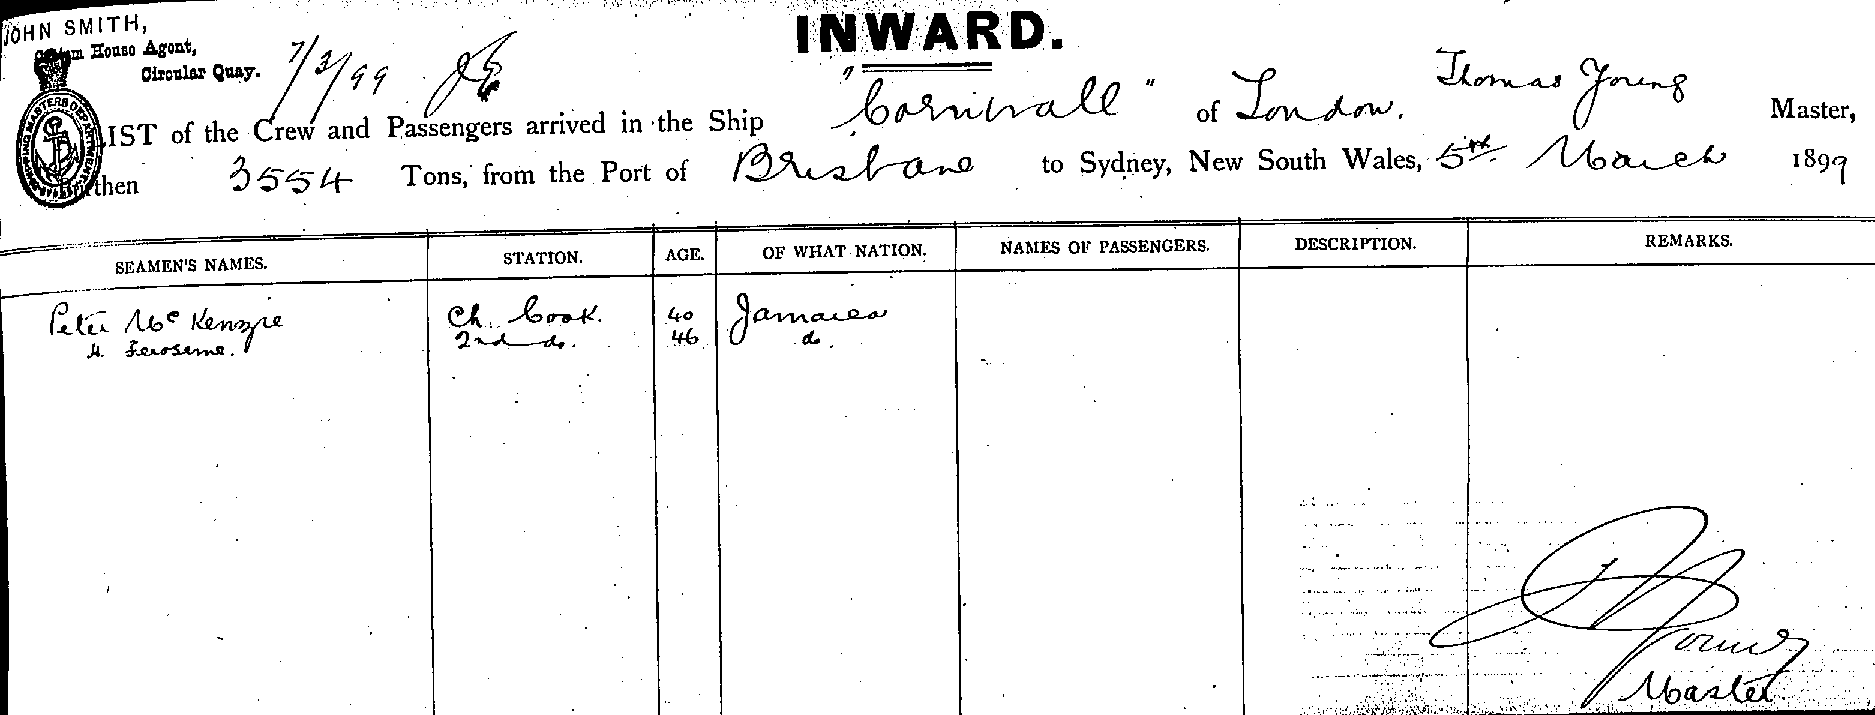 JOHN SMITH,
Custom House Agent,
Circular Quay.
7/3/99
INWARD.
LIST of the Crew and Passengers arrived in the Ship "Cornwall" of London, Thomas Young Master,
Burthen 3554 Tons, from the Port of Brisbane to Sydney, New South Wales, 5th March 1899
SEAMEN'S NAMES. STATION. AGE. OF WHAT NATION. NAMES OF PASSENGERS. DESCRIPTION. REMARKS.
Peter McKenzie Ch. Cook. 40 Jamaica
H. 2nd do. 46 do.
T Young
Master